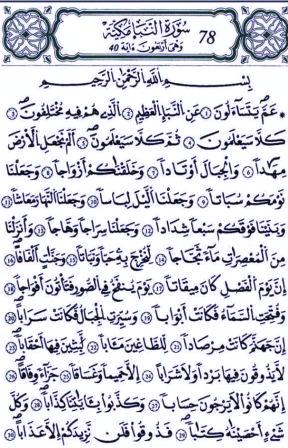 سورة النبإ مكية 78
وهي أربعون ءاية 40
بسم الله الرحمن الرحيم
* عم يتساءلون ① عن النبإ العظيم ② الذى هم فيه مختلفون ③
كلا سيعلمون ④ ثم كلا سيعلمون ⑤ ألم نجعل الأرض
مهدا ⑥ والجبال أوتادا ⑦ وخلقناكم أزواجا ⑧ وجعلنا
نومكم سباتا ⑨ وجعلنا اليل لباسا ⑩ وجعلنا النهار معاشا ⑪
وبنينا فوقكم سبعا شدادا ⑫ وجعلنا سراجا وهاجا ⑬ وأنزلنا
من المعصرات ماء ثجاجا ⑭ لنخرج به حبا ونباتا ⑮ وجنات ألفافا ⑯
إن يوم الفصل كان ميقاتا ⑰ يوم ينفخ فى الصور فتأتون أفواجا ⑱
وفتحت السماء فكانت أبوابا ⑲ وسيرت الجبال فكانت سرابا ⑳
إن جهنم كانت مرصادا ㉑ للطاغين مءابا ㉒ لابثين فيها أحقابا ㉓
لا يذوقون فيها بردا ولا شرابا ㉔ إلا حميما وغساقا ㉕ جزاء وفاقا ㉖
إنهم كانوا لا يرجون حسابا ㉗ وكذبوا بءاياتنا كذابا ㉘ وكل
شىء أحصيناه كتابا ㉙ فذوقوا فلن نزيدكم إلا عذابا ㉚